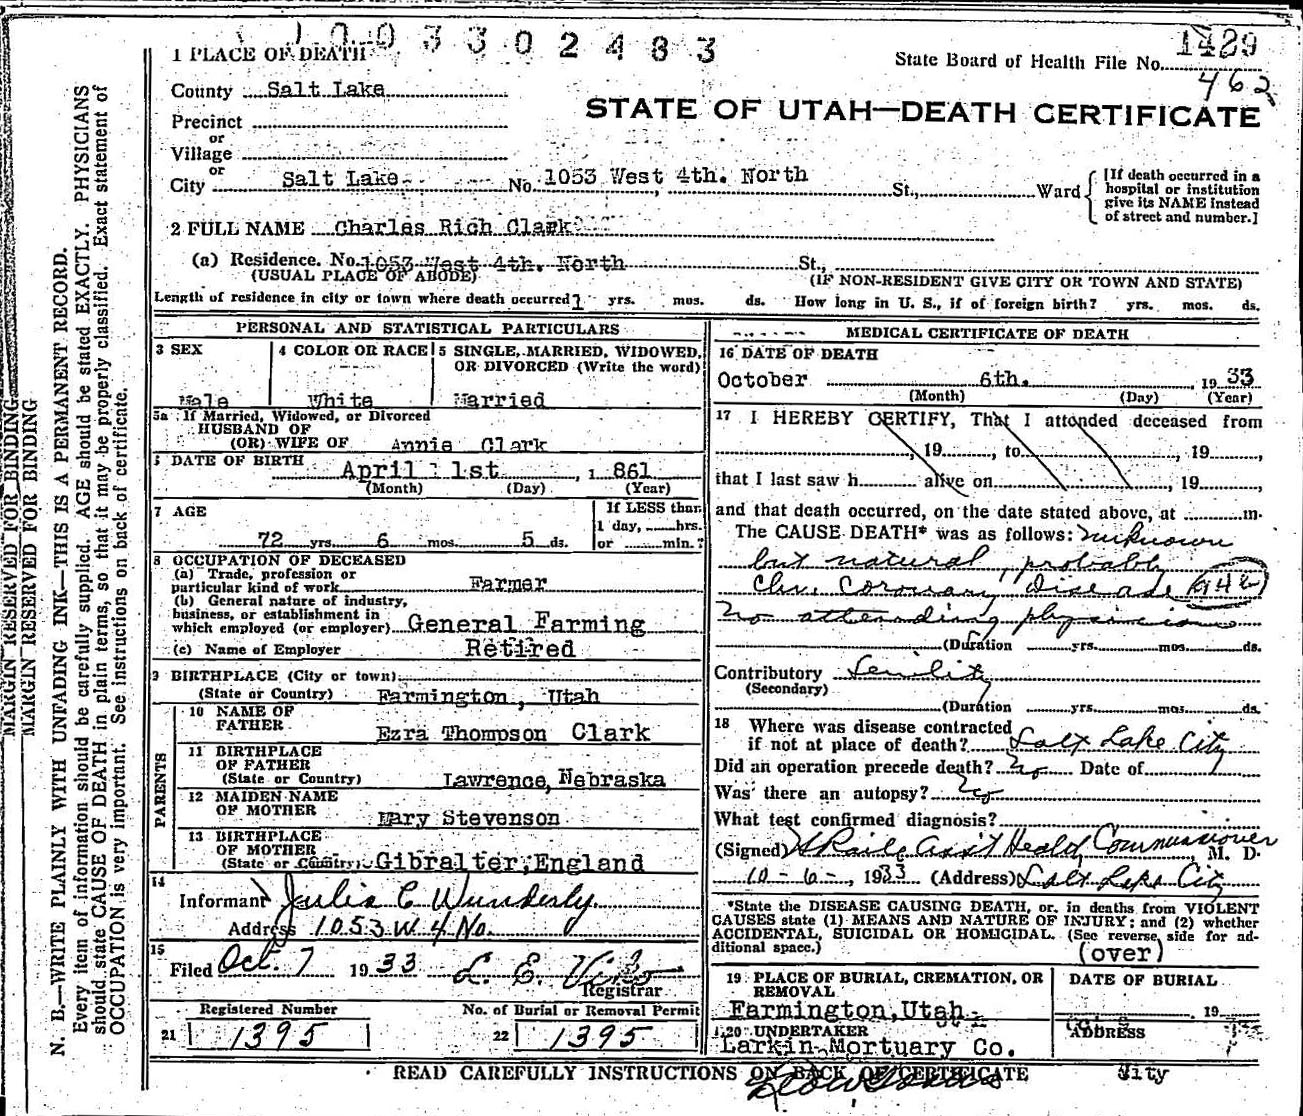 1 0 0 3 3 0 2 4 8 3
1429
1 PLACE OF DEATH
State Board of Health File No.
462
County Salt Lake
STATE OF UTAH—DEATH CERTIFICATE
Precinct
or
Village
or
City Salt Lake No. 1053 West 4th. North St., Ward
[If death occurred in a
hospital or institution
give its NAME instead
of street and number.]
2 FULL NAME Charles Rich Clark
(a) Residence. No. 1053 West 4th. North St.,
(USUAL PLACE OF ABODE) (IF NON-RESIDENT GIVE CITY OR TOWN AND STATE)
Length of residence in city or town where death occurred 1 yrs. mos. ds. How long in U. S., if of foreign birth? yrs. mos. ds.
PERSONAL AND STATISTICAL PARTICULARS
3 SEX
Male
4 COLOR OR RACE
White
5 SINGLE, MARRIED, WIDOWED,
OR DIVORCED (Write the word)
Married
5a If Married, Widowed, or Divorced
HUSBAND OF
(OR) WIFE OF Annie Clark
6 DATE OF BIRTH
April 1st , 1 861
(Month) (Day) (Year)
7 AGE
72 yrs. 6 mos. 5 ds.
If LESS than
1 day, hrs.
or min.?
8 OCCUPATION OF DECEASED
(a) Trade, profession or
particular kind of work Farmer
(b) General nature of industry,
business, or establishment in
which employed (or employer) General Farming
(c) Name of Employer Retired
9 BIRTHPLACE (City or town)
(State or Country) Farmington, Utah
PARENTS
10 NAME OF
FATHER Ezra Thompson Clark
11 BIRTHPLACE
OF FATHER
(State or Country) Lawrence, Nebraska
12 MAIDEN NAME
OF MOTHER Mary Stevenson
13 BIRTHPLACE
OF MOTHER
(State or Country) Gibralter, England
14
Informant Julia C Wunderly
Address 1053 W 4 No.
15
Filed Oct. 7 1933 L. E.
Registrar
Registered Number
21 1395
No. of Burial or Removal Permit
22 1395
MEDICAL CERTIFICATE OF DEATH
16 DATE OF DEATH
October 6th. , 19 33
(Month) (Day) (Year)
17 I HEREBY CERTIFY, That I attended deceased from
, 19 , to , 19 ,
that I last saw h alive on , 19 ,
and that death occurred, on the date stated above, at m.
The CAUSE DEATH* was as follows: unknown
but natural, probably
Chr. Coronary Disease 94b
No attending physician
(Duration yrs. mos. ds.
Contributory Senility
(Secondary)
(Duration yrs. mos. ds.
18 Where was disease contracted
if not at place of death? Salt Lake City
Did an operation precede death? No Date of
Was there an autopsy? No
What test confirmed diagnosis?
(Signed) Ass't Health Commissioner M. D.
10-6-, 1933 (Address) Salt Lake City
*State the DISEASE CAUSING DEATH, or, in deaths from VIOLENT
CAUSES state (1) MEANS AND NATURE OF INJURY; and (2) whether
ACCIDENTAL, SUICIDAL OR HOMICIDAL. (See reverse side for ad-
ditional space.)
(over)
19 PLACE OF BURIAL, CREMATION, OR
REMOVAL
Farmington, Utah
DATE OF BURIAL
19
20 UNDERTAKER
Larkin Mortuary Co.
ADDRESS
City
READ CAREFULLY INSTRUCTIONS ON BACK OF CERTIFICATE
MARGIN RESERVED FOR BINDING
MARGIN RESERVED FOR BINDING
N. B.—WRITE PLAINLY WITH UNFADING INK—THIS IS A PERMANENT RECORD.
Every item of information should be carefully supplied. AGE should be stated EXACTLY. PHYSICIANS
should state CAUSE OF DEATH in plain terms, so that it may be properly classified. Exact statement of
OCCUPATION is very important. See instructions on back of certificate.